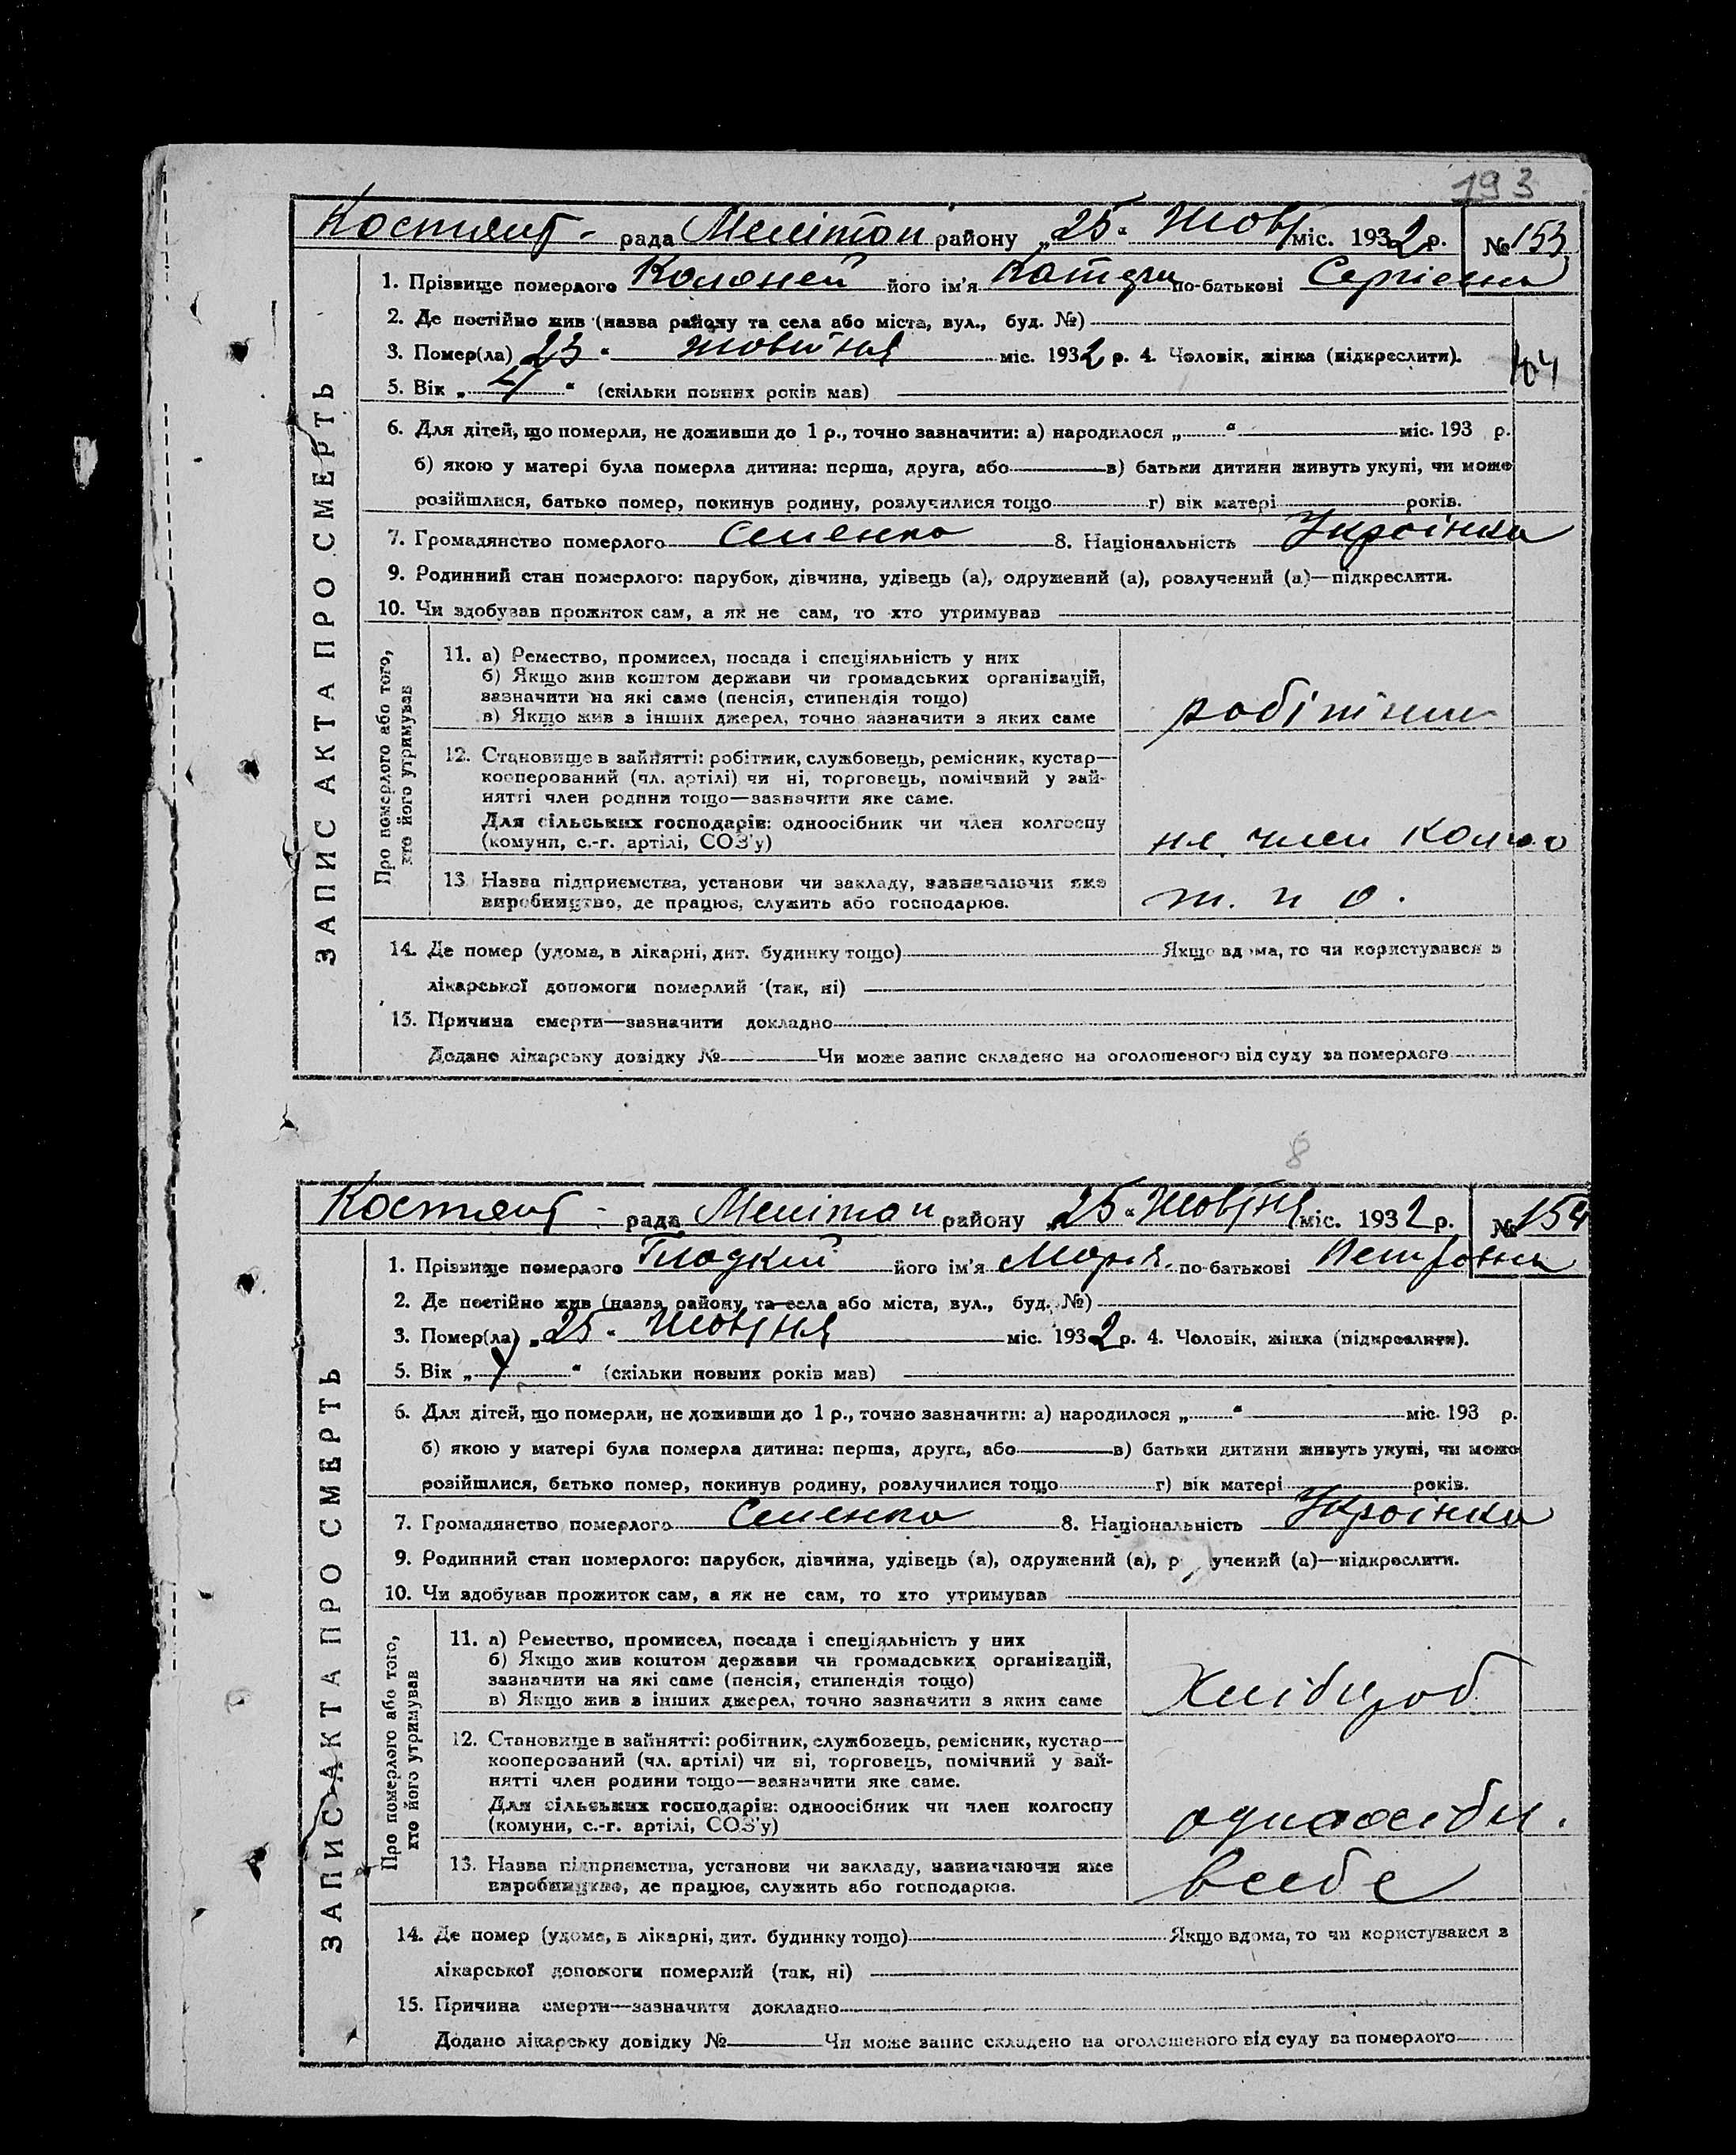 193
Костянт - рада Мелітоп району „25“ Жовт міс. 1932 р. № 153
1. Прізвище померлого Коломей його ім'я Катери по-батькові Сергієвна
2. Де постійно жив (назва району та села або міста, вул., буд. №)
3. Помер(ла) 23 “ жовтня міс. 1932 р. 4. Чоловік, жінка (підкреслити).
5. Вік „ “ (скільки повних років мав)
6. Для дітей, що померли, не доживши до 1 р., точно зазначити: а) народилося „ “ міс. 193 р.
б) якою у матері була померла дитина: перша, друга, або в) батьки дитини живуть укупі, чи може
розійшлися, батько помер, покинув родину, розлучилися тощо г) вік матері років.
7. Громадянство померлого Селенка 8. Національність Українка
9. Родинний стан померлого: парубок, дівчина, удівець (а), одружений (а), розлучений (а)—підкреслити.
10. Чи здобував прожиток сам, а як не сам, то хто утримував
ЗАПИС АКТА ПРО СМЕРТЬ
Про померлого або того,
хто його утримував
11. а) Ремество, промисел, посада і спеціяльність у них
б) Якщо жив коштом держави чи громадських організацій,
зазначити на які саме (пенсія, стипендія тощо)
в) Якщо жив з інших джерел, точно зазначити з яких саме
робітник
12. Становище в зайнятті: робітник, службовець, ремісник, кустар—
кооперований (чл. артілі) чи ні, торговець, помічний у зай-
нятті член родини тощо—зазначити яке саме.
Для сільських господарів: одноосібник чи член колгоспу
(комуни, с.-г. артілі, СОЗ'у)
не член
13. Назва підприємства, установи чи закладу, зазначаючи яке
виробництво, де працює, служить або господарює.
т. п о.
14. Де помер (удома, в лікарні, дит. будинку тощо) Якщо вдома, то чи користувався з
лікарської допомоги померлий (так, ні)
15. Причина смерти—зазначити докладно
Додано лікарську довідку № Чи може запис складено на оголошеного від суду за померлого
8
Костянт - рада Мелітоп району „25“ Жовтня міс. 1932 р. № 154
1. Прізвище померлого Гладкий його ім'я Марія по-батькові Петровна
2. Де постійно жив (назва району та села або міста, вул., буд. №)
3. Помер(ла) „25“ Жовтня міс. 1932 р. 4. Чоловік, жінка (підкреслити).
5. Вік „ “ (скільки повних років мав)
6. Для дітей, що померли, не доживши до 1 р., точно зазначити: а) народилося „ “ міс. 193 р.
б) якою у матері була померла дитина: перша, друга, або в) батьки дитини живуть укупі, чи може
розійшлися, батько помер, покинув родину, розлучилися тощо г) вік матері років.
7. Громадянство померлого Селенка 8. Національність Українка
9. Родинний стан померлого: парубок, дівчина, удівець (а), одружений (а), р учений (а)—підкреслити.
10. Чи здобував прожиток сам, а як не сам, то хто утримував
ЗАПИС АКТА ПРО СМЕРТЬ
Про померлого або того,
хто його утримував
11. а) Ремество, промисел, посада і спеціяльність у них
б) Якщо жив коштом держави чи громадських організацій,
зазначити на які саме (пенсія, стипендія тощо)
в) Якщо жив з інших джерел, точно зазначити з яких саме
Хлібороб
12. Становище в зайнятті: робітник, службовець, ремісник, кустар—
кооперований (чл. артілі) чи ні, торговець, помічний у зай-
нятті член родини тощо—зазначити яке саме.
Для сільських господарів: одноосібник чи член колгоспу
(комуни, с.-г. артілі, СОЗ'у)
одноосібн.
13. Назва підприємства, установи чи закладу, зазначаючи яке
виробництво, де працює, служить або господарює.
в себе
14. Де помер (удома, в лікарні, дит. будинку тощо) Якщо вдома, то чи користувався з
лікарської допомоги померлий (так, ні)
15. Причина смерти—зазначити докладно
Додано лікарську довідку № Чи може запис складено на оголошеного від суду за померлого